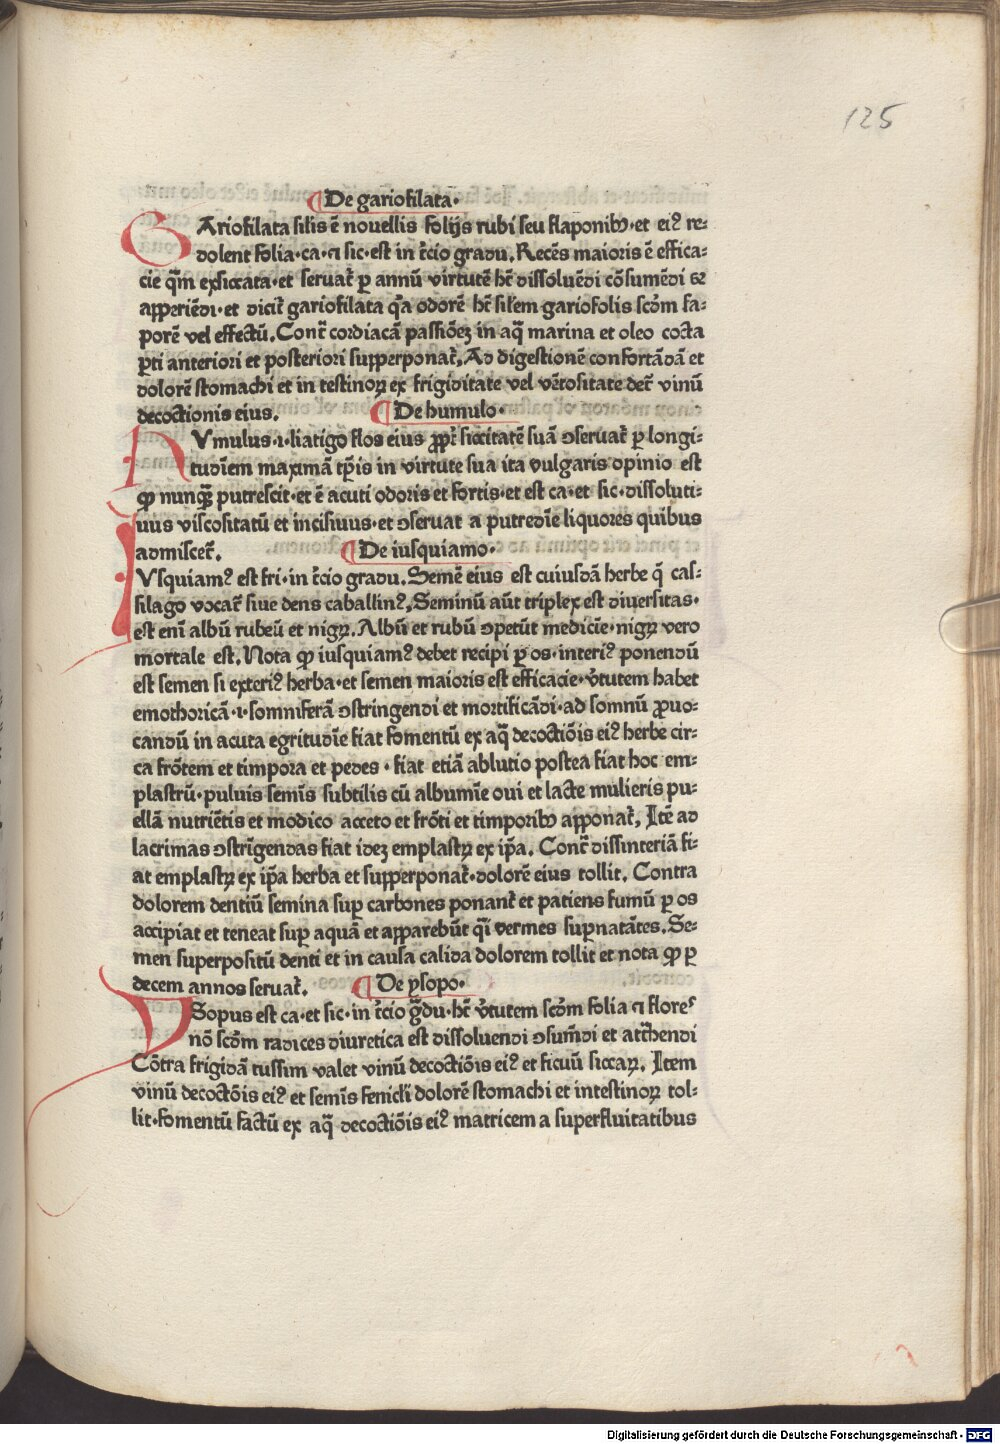 125
De gariofilata·
GAriofilata silis ē novellis folijs rubi seu flaponibꝰ·et eiꝰ re⸗
dolent folia·ca·⁊ sic·est in t̄cio gradu. Recēs maioris ē effica⸗
cie qm̄ exsiccata·et servat̄ ꝑ annū virtutē hꝫ dissoluēdi cōsumēdi ⁊
apperiēdi·et dicit̄ gariofilata qꝛ odorē hꝫ sil'em gariofolis scd̄m sa⸗
porē vel effectū. Cont̄ cordiacā passiōeꝫ in aq̄ marina et oleo cocta
ꝑti anteriori et posteriori supperponat̄. Ad digestionē confortādā et
dolorē stomachi et in testinoꝝ ex frigiditate vel vētositate det̄ vinū
decoctionis eius. De humulo·
HVmulus·i·liatigo flos eius ꝓpt̄ siccitatē suā ꝯservat̄ ꝑ longi⸗
tudīem maximā tꝑis in virtute sua ita vulgaris opinio est
ꝙ nunqꝫ putrescit·et ē acuti odoris et fortis·et est ca·et sic·dissoluti⸗
uus viscositatū et incisiuus·et ꝯservat a putredīe liquores quibus
admiscet̄. De iusquiamo·
IVsquiamꝰ est fri·in t̄cio gradu. Semē eius est cuiusdā herbe q̄ cas⸗
silago vocat̄ siue dens caballinꝰ. Seminū aūt triplex est diversitas·
est enī albū rubeū et nigꝝ. Albū et rubū ꝯpetūt medicīe·nigꝝ vero
mortale est. Nota ꝙ iusquiamꝰ debet recipi ꝑ os·interiꝰ ponendū
est semen si exteriꝰ herba·et semen maioris est efficacie·v̄tutem habet
emothoricā·i·somniferā ꝯstringendi et mortificādi·ad somnū ꝓuo⸗
candū in acuta egritudīe fiat fomentū ex aq̄ decoctiōis eiꝰ herbe cir⸗
ca frōtem et timpora et pedes·fiat etiā ablutio postea fiat hoc em⸗
plastrū·puluis semīs subtilis cū albumīe oui et lacte mulieris pu⸗
ellā nutriētis et modico acceto et frōti et timporibꝰ apponat̄. Itē ad
lacrimas ꝯstrīgendas fiat ideꝫ emplastꝝ ex ip̄a. Cont̄ dissinteriā fi⸗
at emplastꝝ ex ip̄a herba et supperponat̄·dolorē eius tollit. Contra
dolorem dentiū semina suꝑ carbones ponant̄ et patiens fumū ꝑ os
accipiat et teneat suꝑ aquā et apparebūt q̄i vermes suꝑnatātes. Se⸗
men superpositū denti et in causa calida dolorem tollit et nota ꝙ ꝑ
decem annos servat̄. De ysopo·
YSopus est ca·et sic·in t̄cio ḡdu·hꝫ v̄tutem scd̄m folia ⁊ flores
nō scd̄m radices diuretica est dissoluendi ꝯsum̄di et att̄hendi
Cōtra frigidā tussim valet vinū decoctiōis eiꝰ et ficuū siccaꝝ. Item
vinū decoctōis eiꝰ et semīs fenicl'i dolorē stomachi et intestinoꝝ tol⸗
lit·fomentū factū ex aq̄ decoctiōis eiꝰ matricem a superfluitatibus
Digitalisierung gefördert durch die Deutsche Forschungsgemeinschaft - DFG